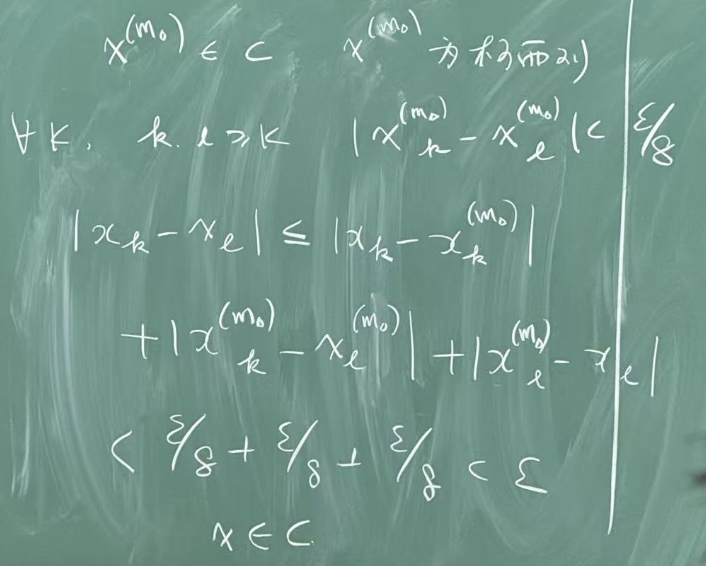 x^{(m₀)} ∈ C x^{(m₀)} 为柯西列
∀ K, k.l ≥ K |x_k^{(m₀)} - x_l^{(m₀)}| < ε/8
|x_k - x_l| ≤ |x_k - x_k^{(m₀)}|
+ |x_k^{(m₀)} - x_l^{(m₀)}| + |x_l^{(m₀)} - x_l|
< ε/8 + ε/8 + ε/8 < ε
x ∈ C.